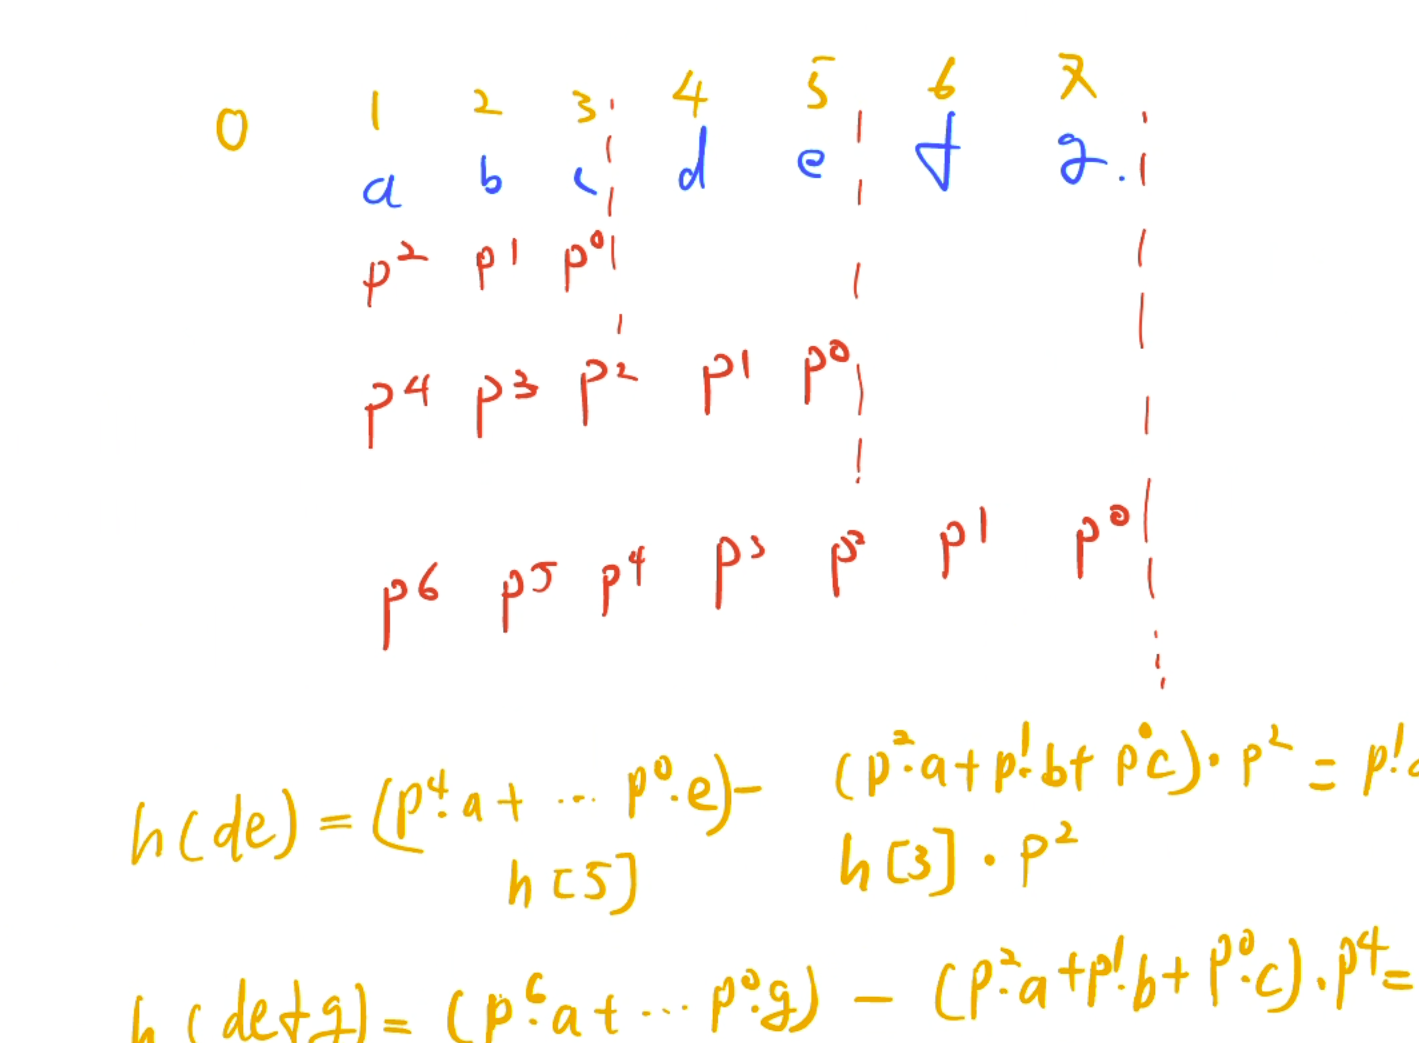 0 1 2 3 4 5 6 7
a b c d e f g.
p² p¹ p⁰
p⁴ p³ p² p¹ p⁰
p⁶ p⁵ p⁴ p³ p² p¹ p⁰
h(de) = (p⁴·a + ... p⁰·e) - (p²·a + p¹·b + p⁰c)·p² = p¹·
h[5] h[3]·p²
h(defg) = (p⁶·a + ... p⁰·g) - (p²·a + p¹·b + p⁰·c)·p⁴ =